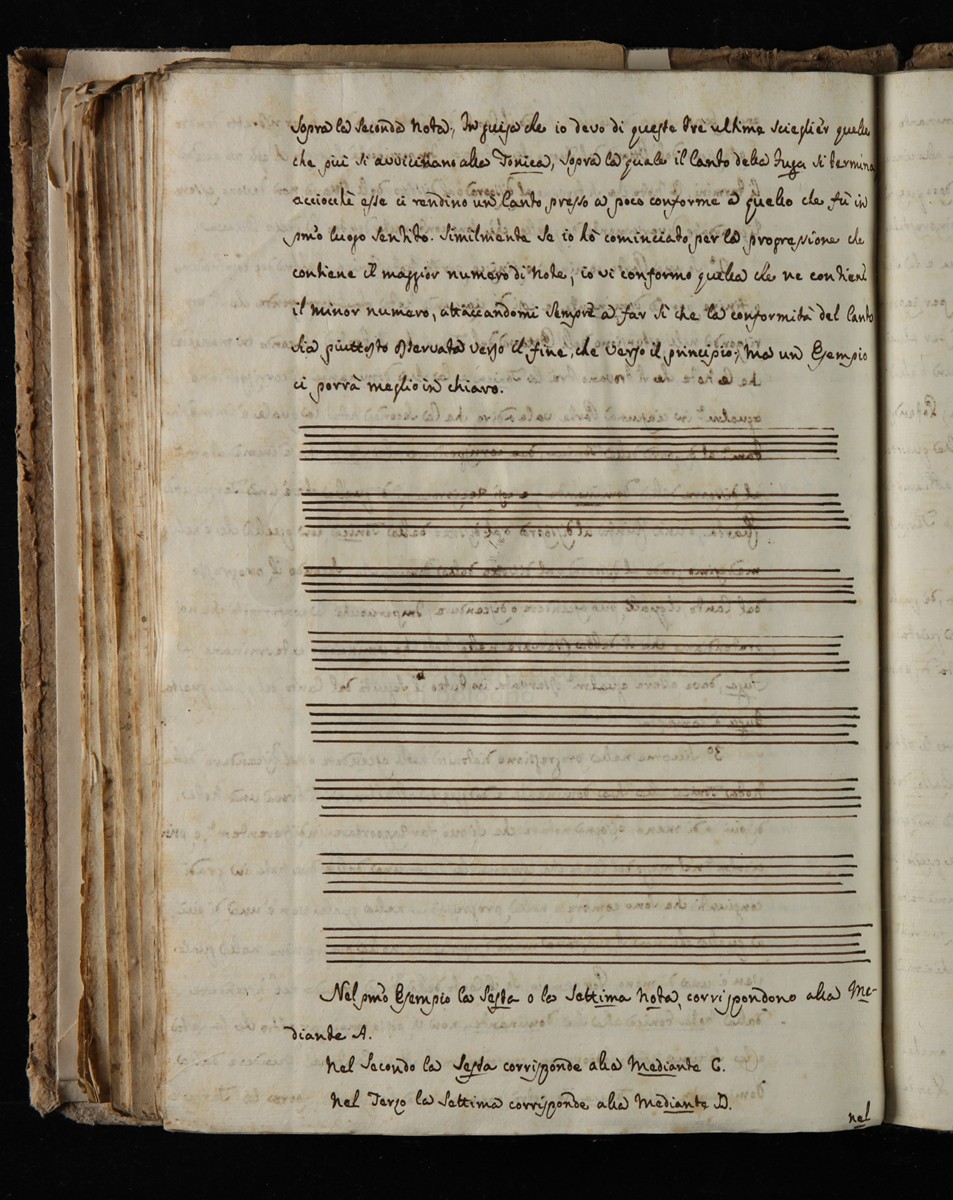 sopra la seconda Nota; In guisa che io devo di queste trè ultime scieglier quelle
che piú si avvicinano alla Tonica, sopra la quale il Canto della Fuga si termina
acciocchè esse ci rendino un Canto presso a poco conforme à quello che fù in
pmo luogo sentito. Similmente se io hò cominciato per la progressione che
contiene il maggior numero di Note, io vi conformo quella che ne contiene
il minor numero, attaccandomi sempre a far sì che la conformità del Canto
sia piuttosto osservata verso il fine, che verso il principio; ma un Esempio
ci porrà meglio in chiaro.
Nel pmo Esempio la Sesta o la Settima Nota, corrispondono alla Me-
diante A.
Nel Secondo la Sesta corrisponde alla Mediante C.
Nel Terzo la Settima corrisponde alla Mediante D.
nel